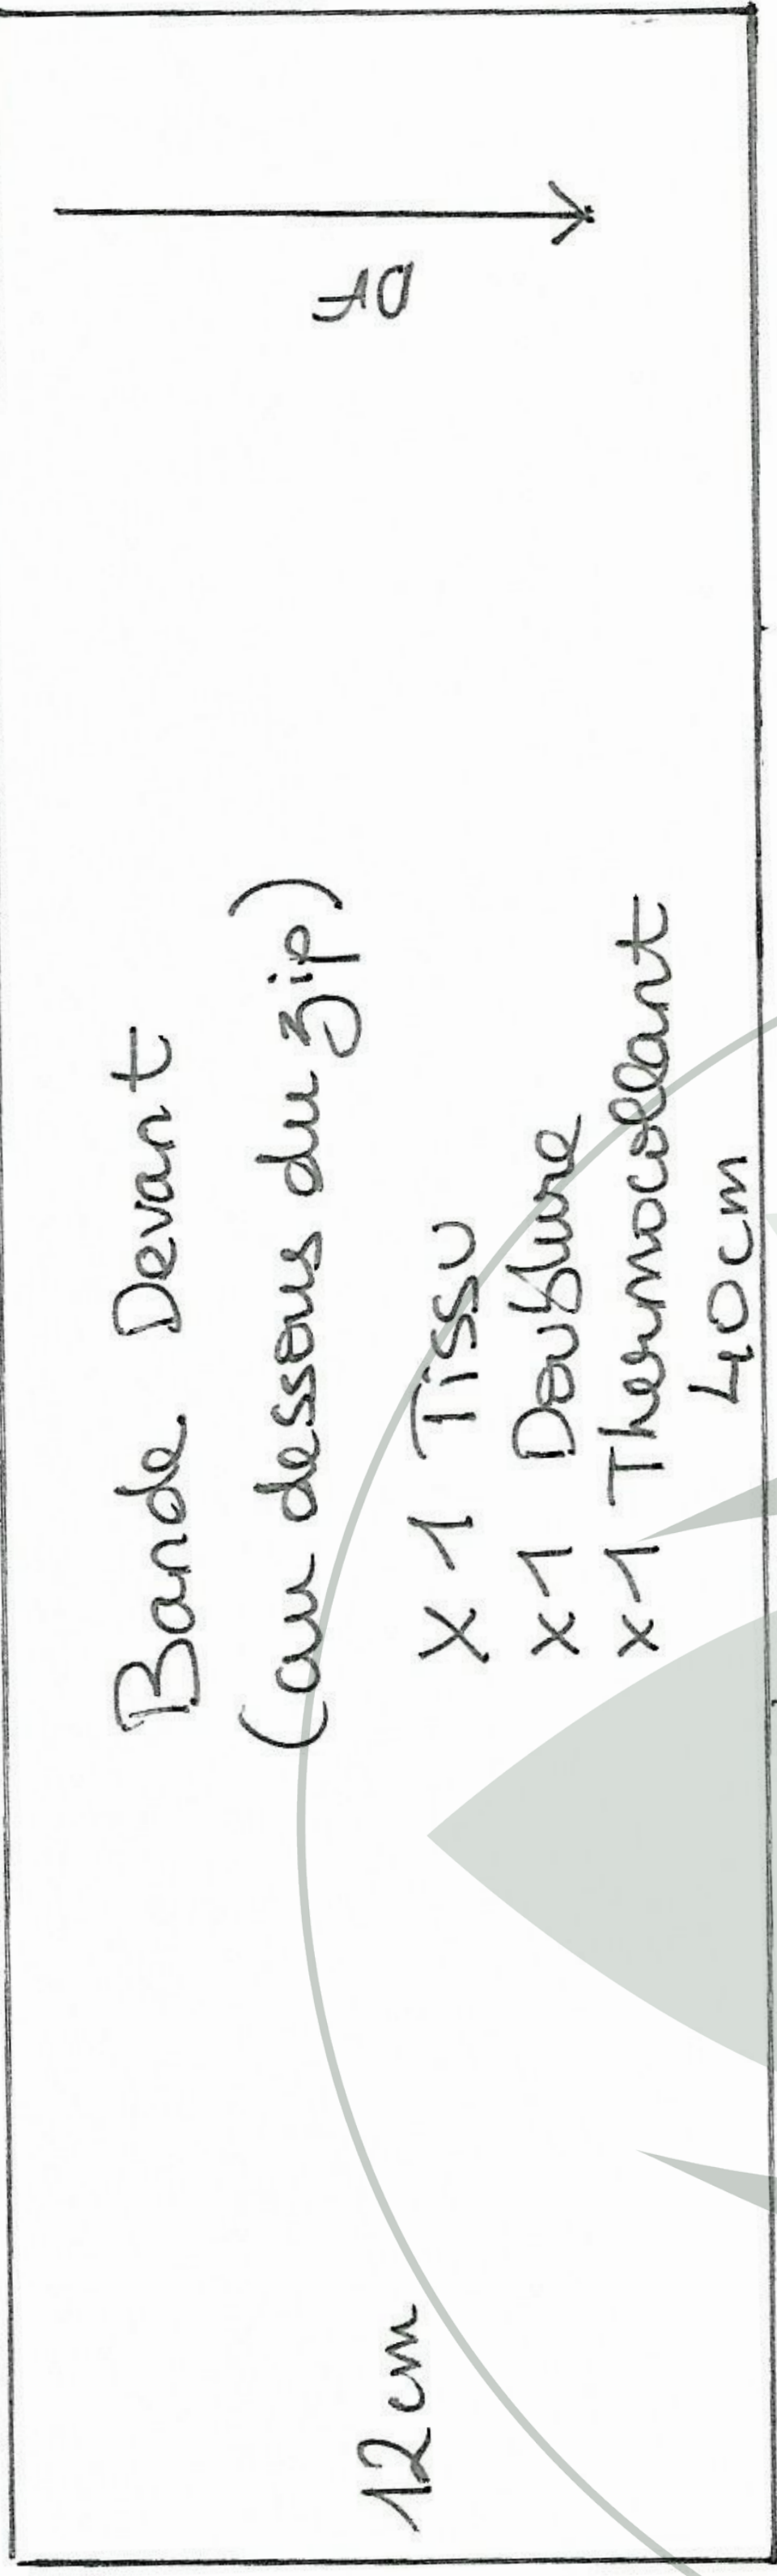 Bande Devant
(au dessous du zip)
x 1 Tissu
x 1 Doublure
x 1 Thermocollant
40cm
12cm
DF